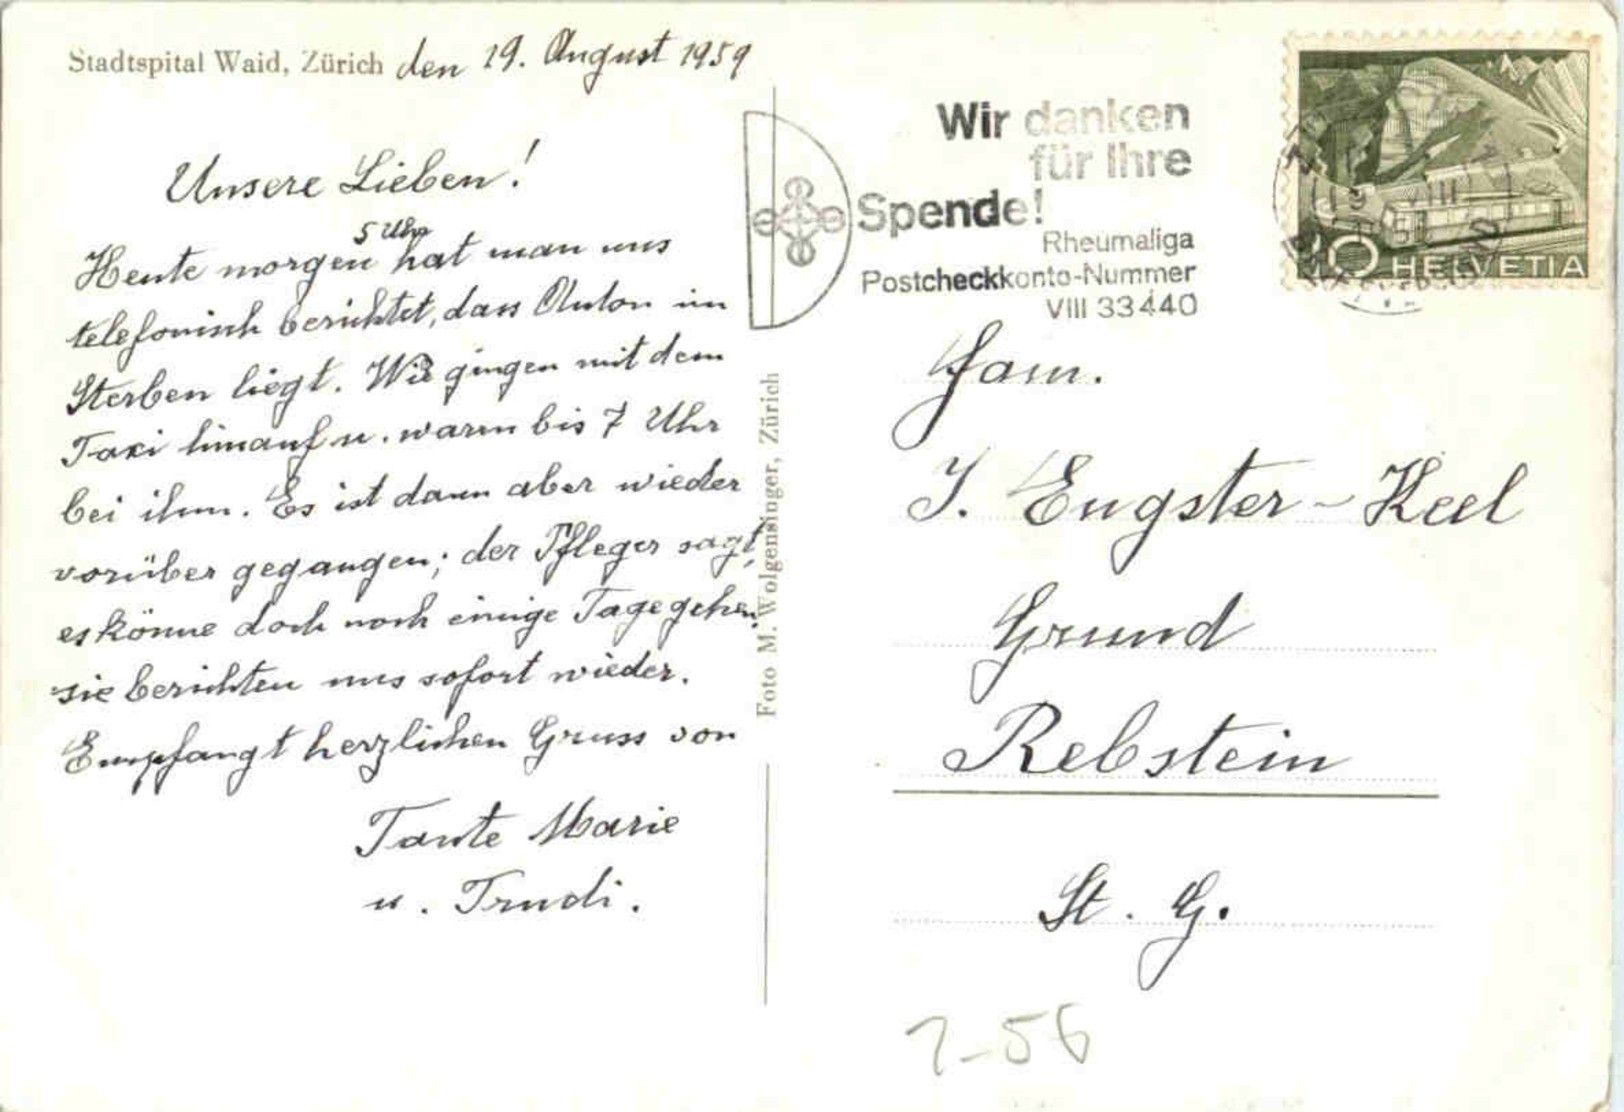 Stadtspital Waid, Zürich den 19. August 1959
Unsere Lieben!
5 Uhr
Heute morgen hat man uns
telefonisch berichtet, dass Anton im
Sterben liegt. Wir gingen mit dem
Taxi hinauf u. waren bis 7 Uhr
bei ihm. Es ist dann aber wieder
vorüber gegangen; der Pfleger sagt,
es könne doch noch einige Tage gehen,
sie berichten uns sofort wieder.
Empfangt herzlichen Gruss von
Tante Marie
u. Trudi.
Foto M. Wolgensinger, Zürich
Wir danken
für Ihre
Spende!
Rheumaliga
Postcheckkonto-Nummer
VIII 33440
10 HELVETIA
Fam.
J. Engster-Keel
Grund
Rebstein
St. G.